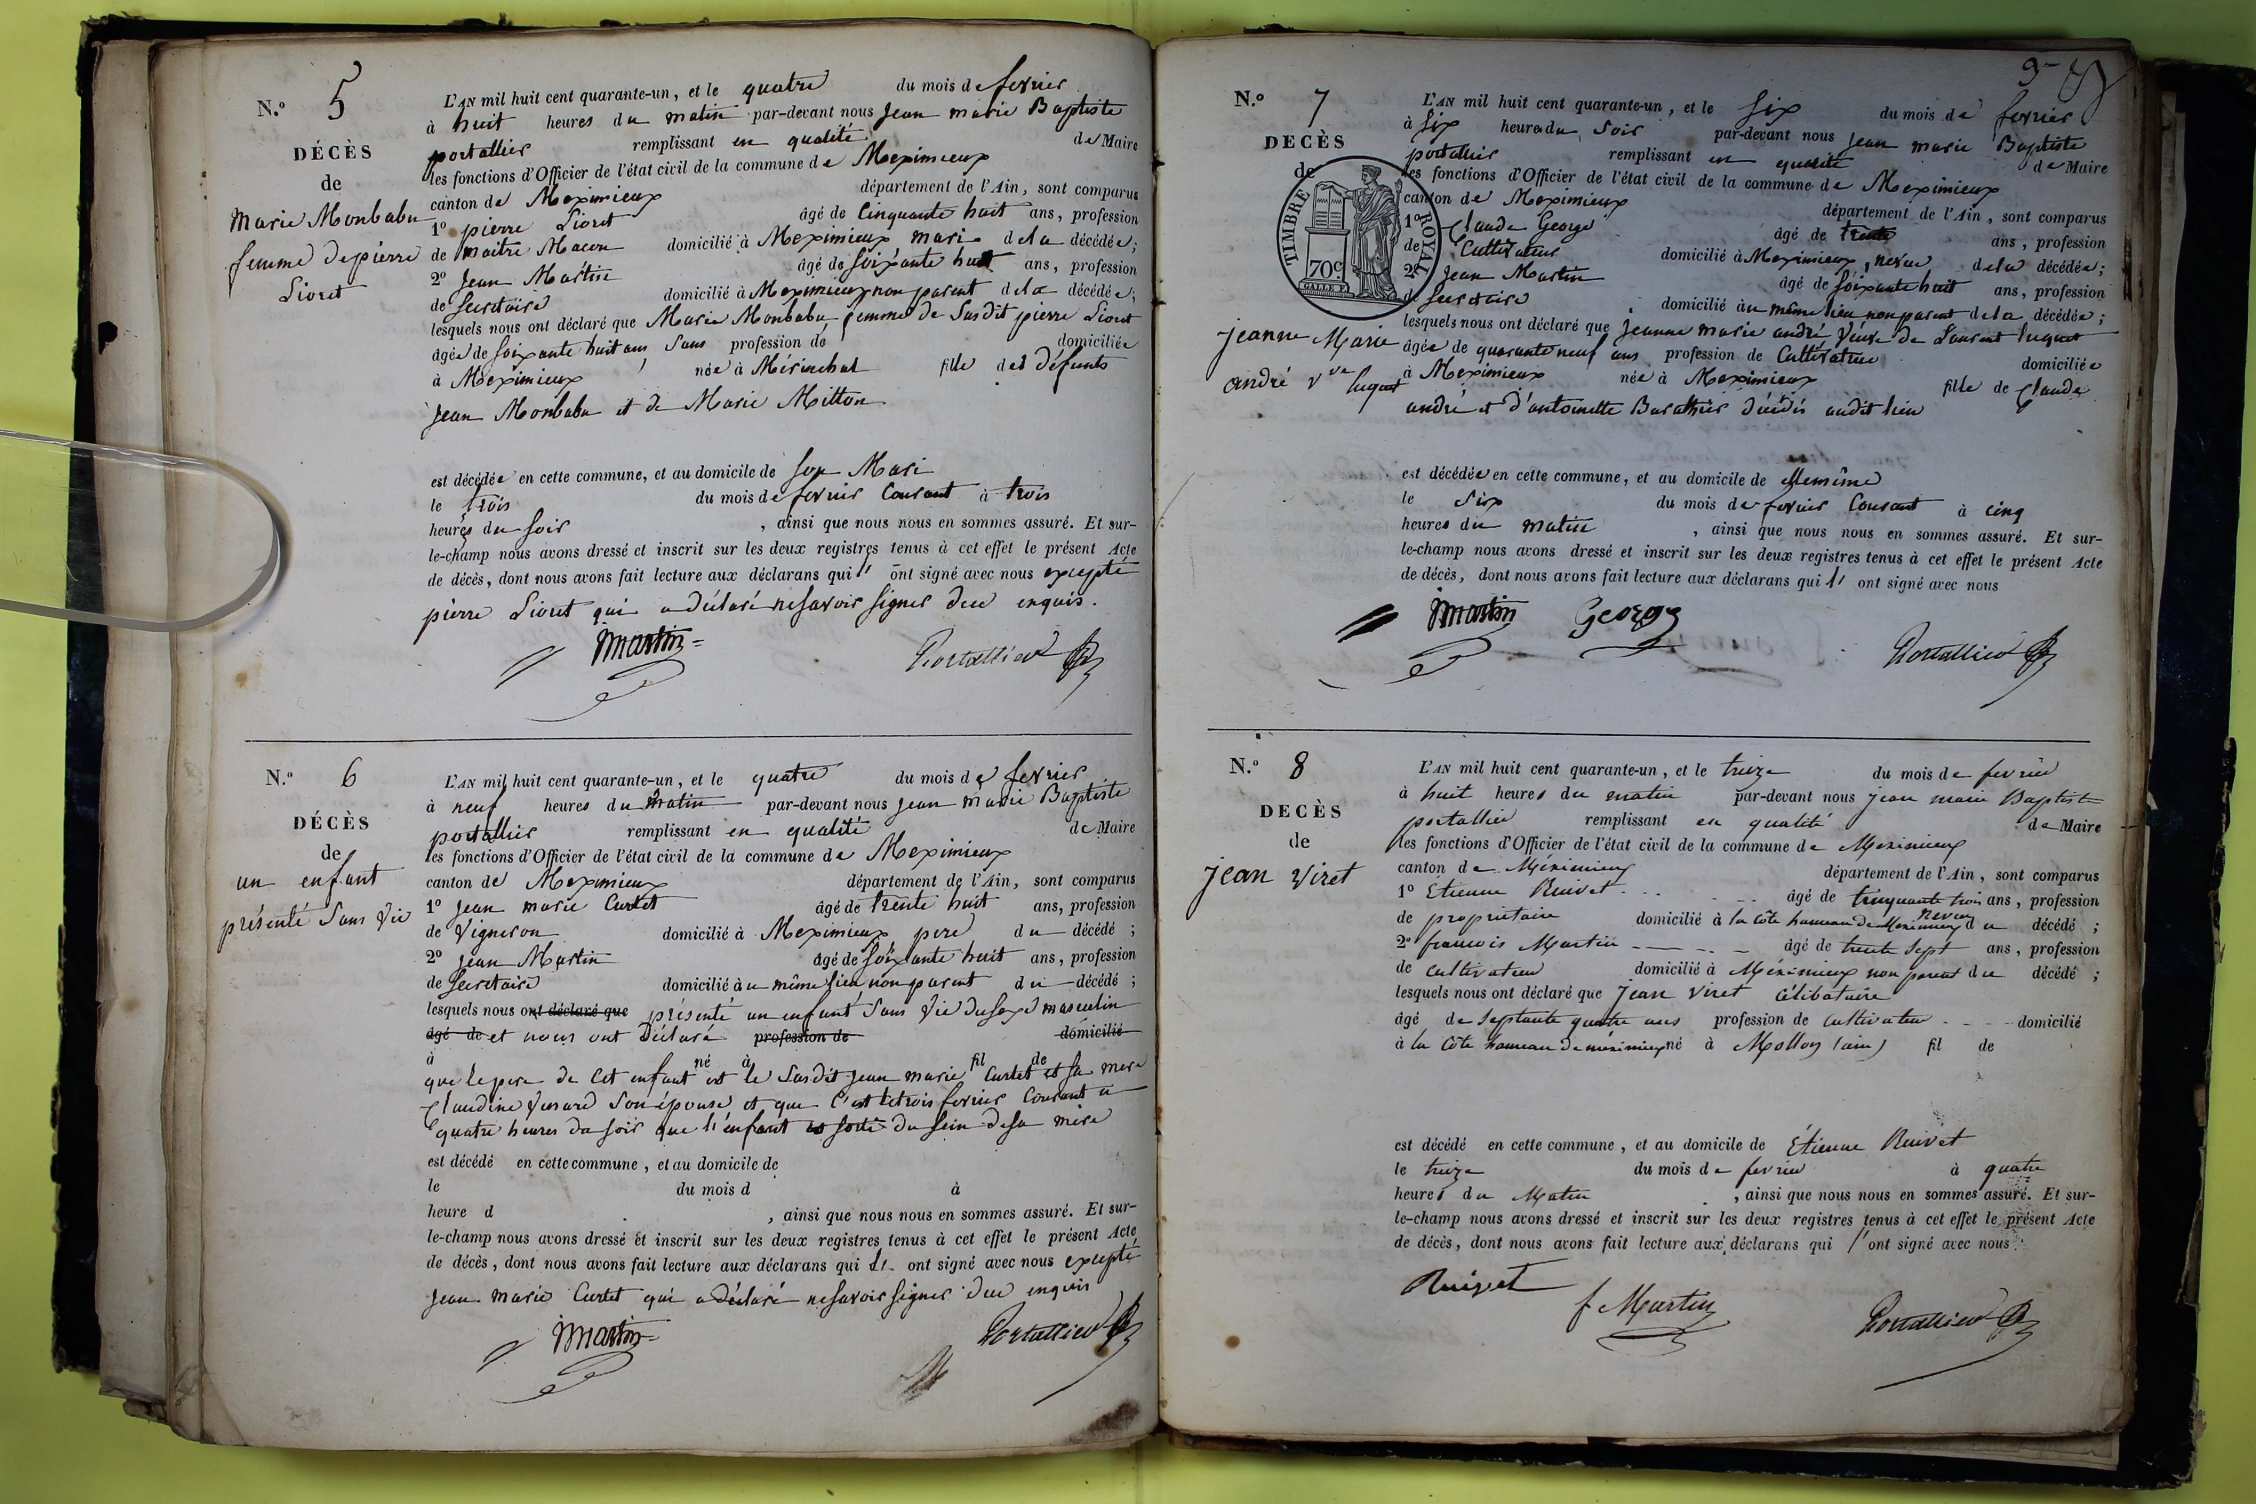 N.º 5
DÉCÈS
de
Marie Monbabu
femme de pierre
Lioret
L'AN mil huit cent quarante-un, et le quatre du mois de fevrier
à huit heures du matin par-devant nous Jean marie Baptiste
portallier remplissant en qualité de Maire
les fonctions d'Officier de l'état civil de la commune de Meximieux
canton de Meximieux département de l'Ain, sont comparus
1º pierre Lioret âgé de Cinquante huit ans, profession
de maitre Macon domicilié à Meximieux mari de la décédée;
2º Jean Martin âgé de soixante huit ans, profession
de Secrétaire domicilié à Meximieux non parent de la décédée;
lesquels nous ont déclaré que Marie Monbabu femme de Susdit pierre Lioret
âgée de soixante huit ans Sans profession de domiciliée
à Meximieux née à Mérinchal fille des défunts
Jean Monbabu et de Marie Mitton
est décédée en cette commune, et au domicile de son Mari
le trois du mois de fevrier Courant à trois
heures du soir, ainsi que nous nous en sommes assuré. Et sur-
le-champ nous avons dressé et inscrit sur les deux registres tenus à cet effet le présent Acte
de décès, dont nous avons fait lecture aux déclarans qui l' ont signé avec nous excepté
pierre Lioret qui a déclaré ne savoir signer de ce enquis.
Martin Portallier
N.º 6
DÉCÈS
de
un enfant
présenté Sans Vie
L'AN mil huit cent quarante-un, et le quatre du mois de fevrier
à neuf heures du matin par-devant nous Jean marie Baptiste
portallier remplissant en qualité de Maire
les fonctions d'Officier de l'état civil de la commune de Meximieux
canton de Meximieux département de l'Ain, sont comparus
1º Jean marie Curtet âgé de trente huit ans, profession
de Vigneron domicilié à Meximieux pere du décédé;
2º Jean Martin âgé de soixante huit ans, profession
de Secrétaire domicilié au même lieu non parent du décédé;
lesquels nous ont déclaré que présenté un enfant Sans Vie du sexe masculin
âgé de et nous ont Déclaré profession de domicilié
à né à fil de
que le pere de Cet enfant est le Susdit Jean marie Curtet et sa mere
Claudine Son épouse et que C'est le trois fevrier Courant a
quatre heures du soir que l'enfant est sorti du sein de sa mère
est décédé en cette commune, et au domicile de
le du mois d à
heure d, ainsi que nous nous en sommes assuré. Et sur-
le-champ nous avons dressé et inscrit sur les deux registres tenus à cet effet le présent Acte
de décès, dont nous avons fait lecture aux déclarans qui l' ont signé avec nous excepté
Jean Marie Curtet qui a déclaré ne savoir signer de ce enquis
Martin Portallier
N.º 7
DECÈS
de
TIMBRE ROYAL
70c.
Jeanne Marie
andré Vve luquet
L'AN mil huit cent quarante-un, et le Six du mois de fevrier
à Six heures du Soir par-devant nous Jean marie Baptiste
portallier remplissant en qualité de Maire
les fonctions d'Officier de l'état civil de la commune de Meximieux
canton de Meximieux département de l'Ain, sont comparus
1º Claude George âgé de trente ans, profession
de Cultivateur domicilié à Meximieux, neveu de la décédée;
2º Jean Martin âgé de soixante huit ans, profession
de Secrétaire domicilié au même lieu non parent de la décédée;
lesquels nous ont déclaré que Jeanne marie andré Veuve de Laurent luquet
âgée de quarante neuf ans profession de Cultivatrice domiciliée
à Meximieux née à Meximieux fille de Claude
andré et d'antoinette Barathier décédés audit lieu
est décédée en cette commune, et au domicile de Elle même
le six du mois de fevrier Courant à cinq
heures du matin, ainsi que nous nous en sommes assuré. Et sur-
le-champ nous avons dressé et inscrit sur les deux registres tenus à cet effet le présent Acte
de décès, dont nous avons fait lecture aux déclarans qui l' ont signé avec nous
Martin George Portallier
N.º 8
DECÈS
de
Jean Viret
L'AN mil huit cent quarante-un, et le treize du mois de fevrier
à huit heures du matin par-devant nous jean marie Baptiste
portallier remplissant en qualité de Maire
les fonctions d'Officier de l'état civil de la commune de Meximieux
canton de Méximieux département de l'Ain, sont comparus
1º Etienne Ruivet âgé de cinquante trois ans, profession
de propriétaire domicilié à la côte hameau de Meximieux neveu du décédé;
2º francois Martin âgé de trente sept ans, profession
de cultivateur domicilié à Méximieux non parent du décédé;
lesquels nous ont déclaré que Jean Viret célibataire
âgé de septante quatre ans profession de cultivateur domicilié
à la Côte hameau de meximieux né à Mollon (ain) fil de
est décédé en cette commune, et au domicile de Étienne Ruivet
le treize du mois de fevrier à quatre
heures du Matin, ainsi que nous nous en sommes assuré. Et sur-
le-champ nous avons dressé et inscrit sur les deux registres tenus à cet effet le présent Acte
de décès, dont nous avons fait lecture aux déclarans qui l' ont signé avec nous.
Ruivet f Martin Portallier